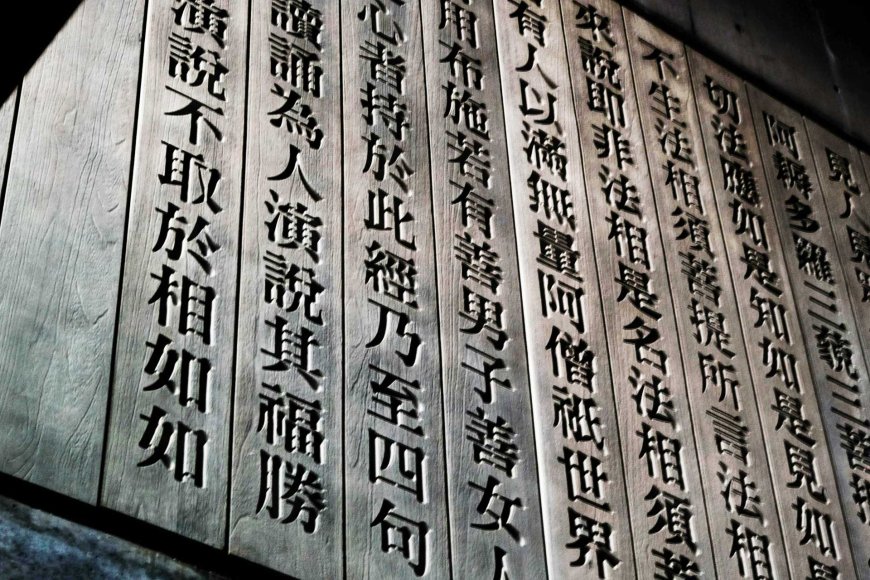 見人見
阿耨多羅三藐三菩提
切法應如是知如是見如
不生法相須菩提所言法相
來說即非法相是名法相須菩
有人以滿無量阿僧祇世界
用布施若有善男子善女人
心者持於此經乃至四句
讀誦為人演說其福勝
演說不取於相如如